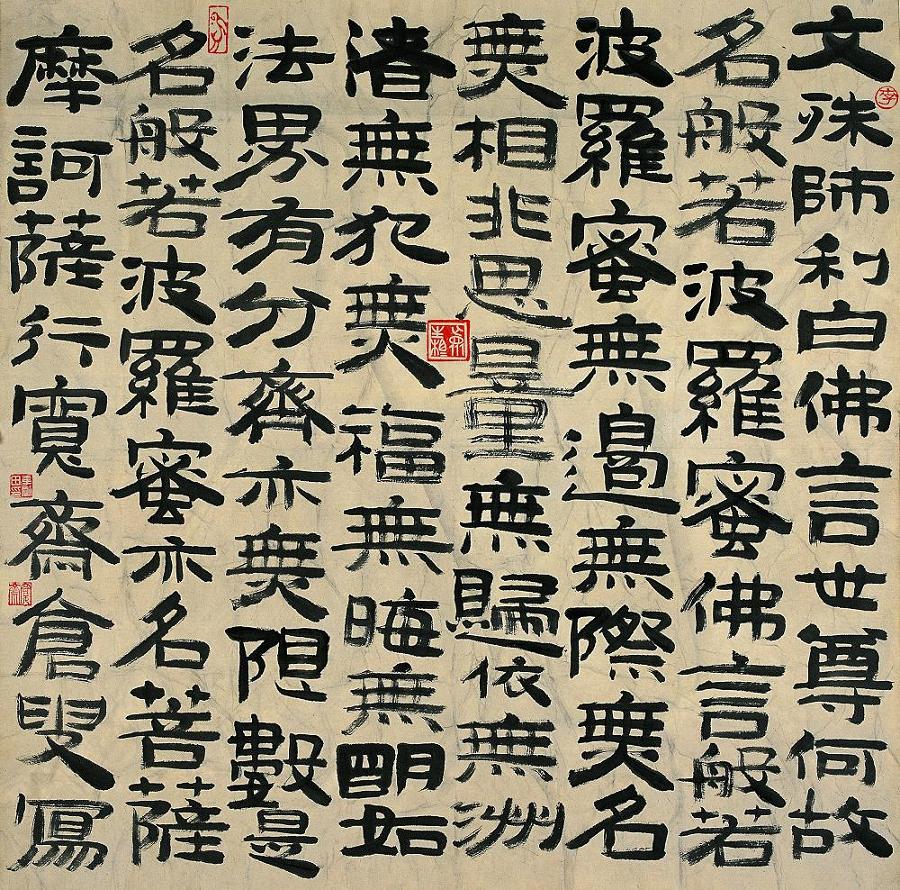 文殊師利白佛言世尊何故
名般若波羅蜜佛言般若
波羅蜜無邊無際無名
無相非思量無歸依無洲
渚無犯無福無晦無明如
法界有分齊亦無限數是
名般若波羅蜜亦名菩薩
摩訶薩行寬齋倉叟寫